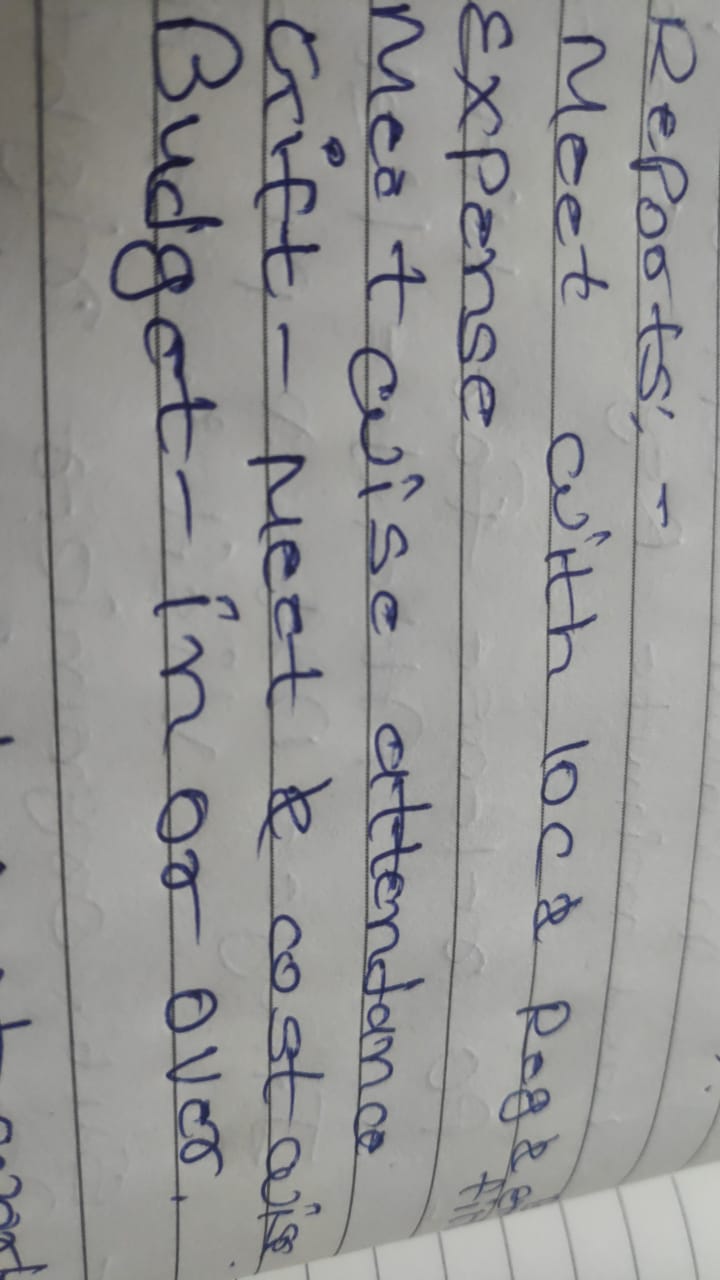 Reports; -
Meet with loc & Reg &
Expense
Meet wise attendance
Gift - Meet & cost wise
Budget - in or over.